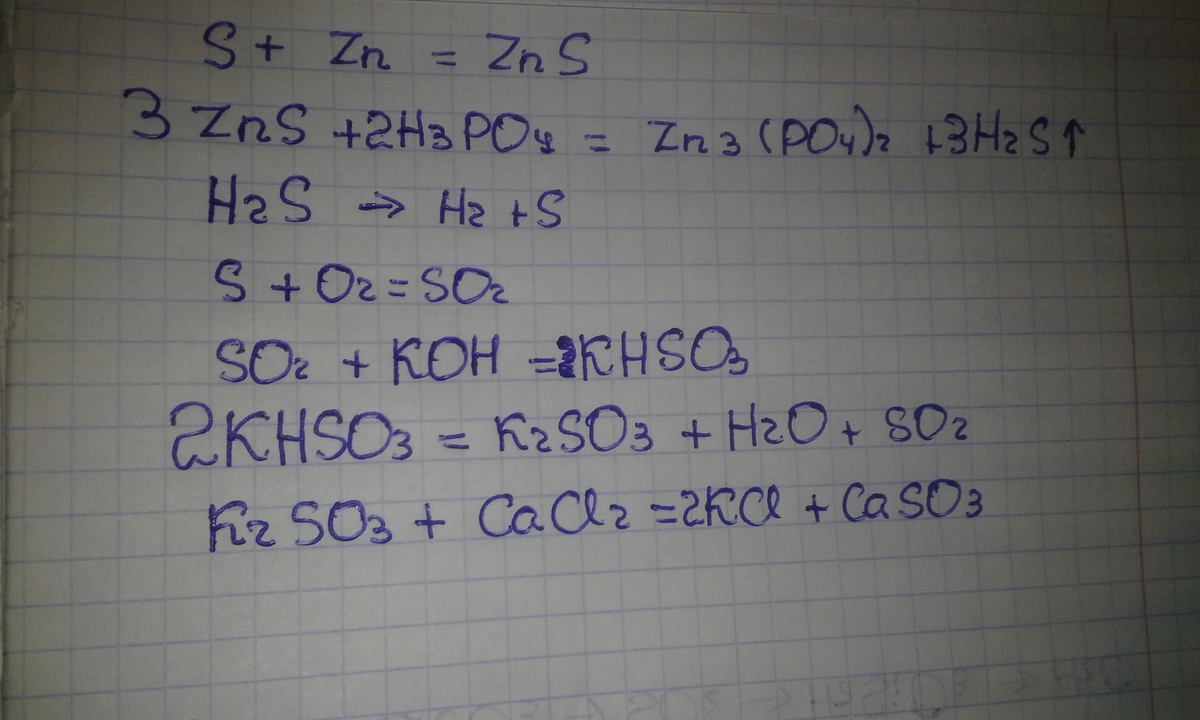 S + Zn = ZnS
3 ZnS + 2H3PO4 = Zn3(PO4)2 + 3H2S↑
H2S → H2 + S
S + O2 = SO2
SO2 + KOH = KHSO3
2KHSO3 = K2SO3 + H2O + SO2
K2SO3 + CaCl2 = 2KCl + CaSO3